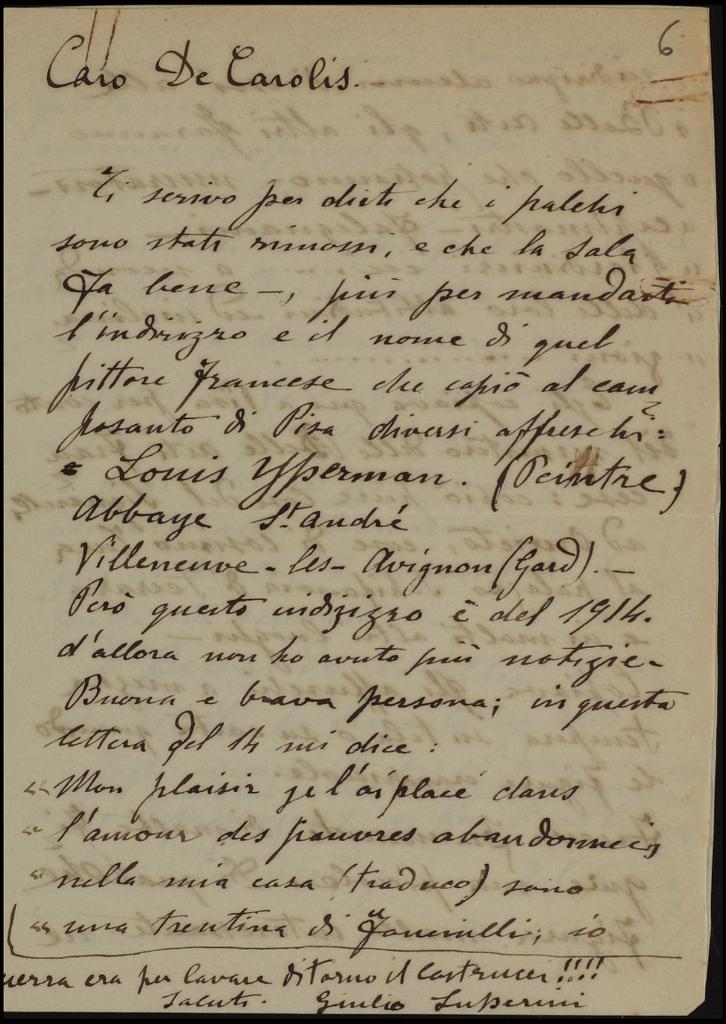 6
Caro De Carolis.
Ti scrivo per dirti che i palchi
sono stati rimossi, e che la sala
fa bene —, più per mandarti
l'indirizzo e il nome di quel
pittore francese che copiò al cam
posanto di Pisa diversi affreschi:
Louis Ypserman. (Peintre)
Abbaye St. André
Villeneuve-les-Avignon (Gard). —
Però questo indizizzo è del 1914.
d'allora non ho avuto più notizie-
Buona e brava persona; in questa
lettera del 14 mi dice:
" Mon plaisir je l'ai placé dans
" l'amour des pauvres abandonneés
" nella mia casa (traduco) sono
" una trentina di fanciulli; io
uerra era per levare di torno il Castrucci!!!!
Saluti. Giulio Lupserini